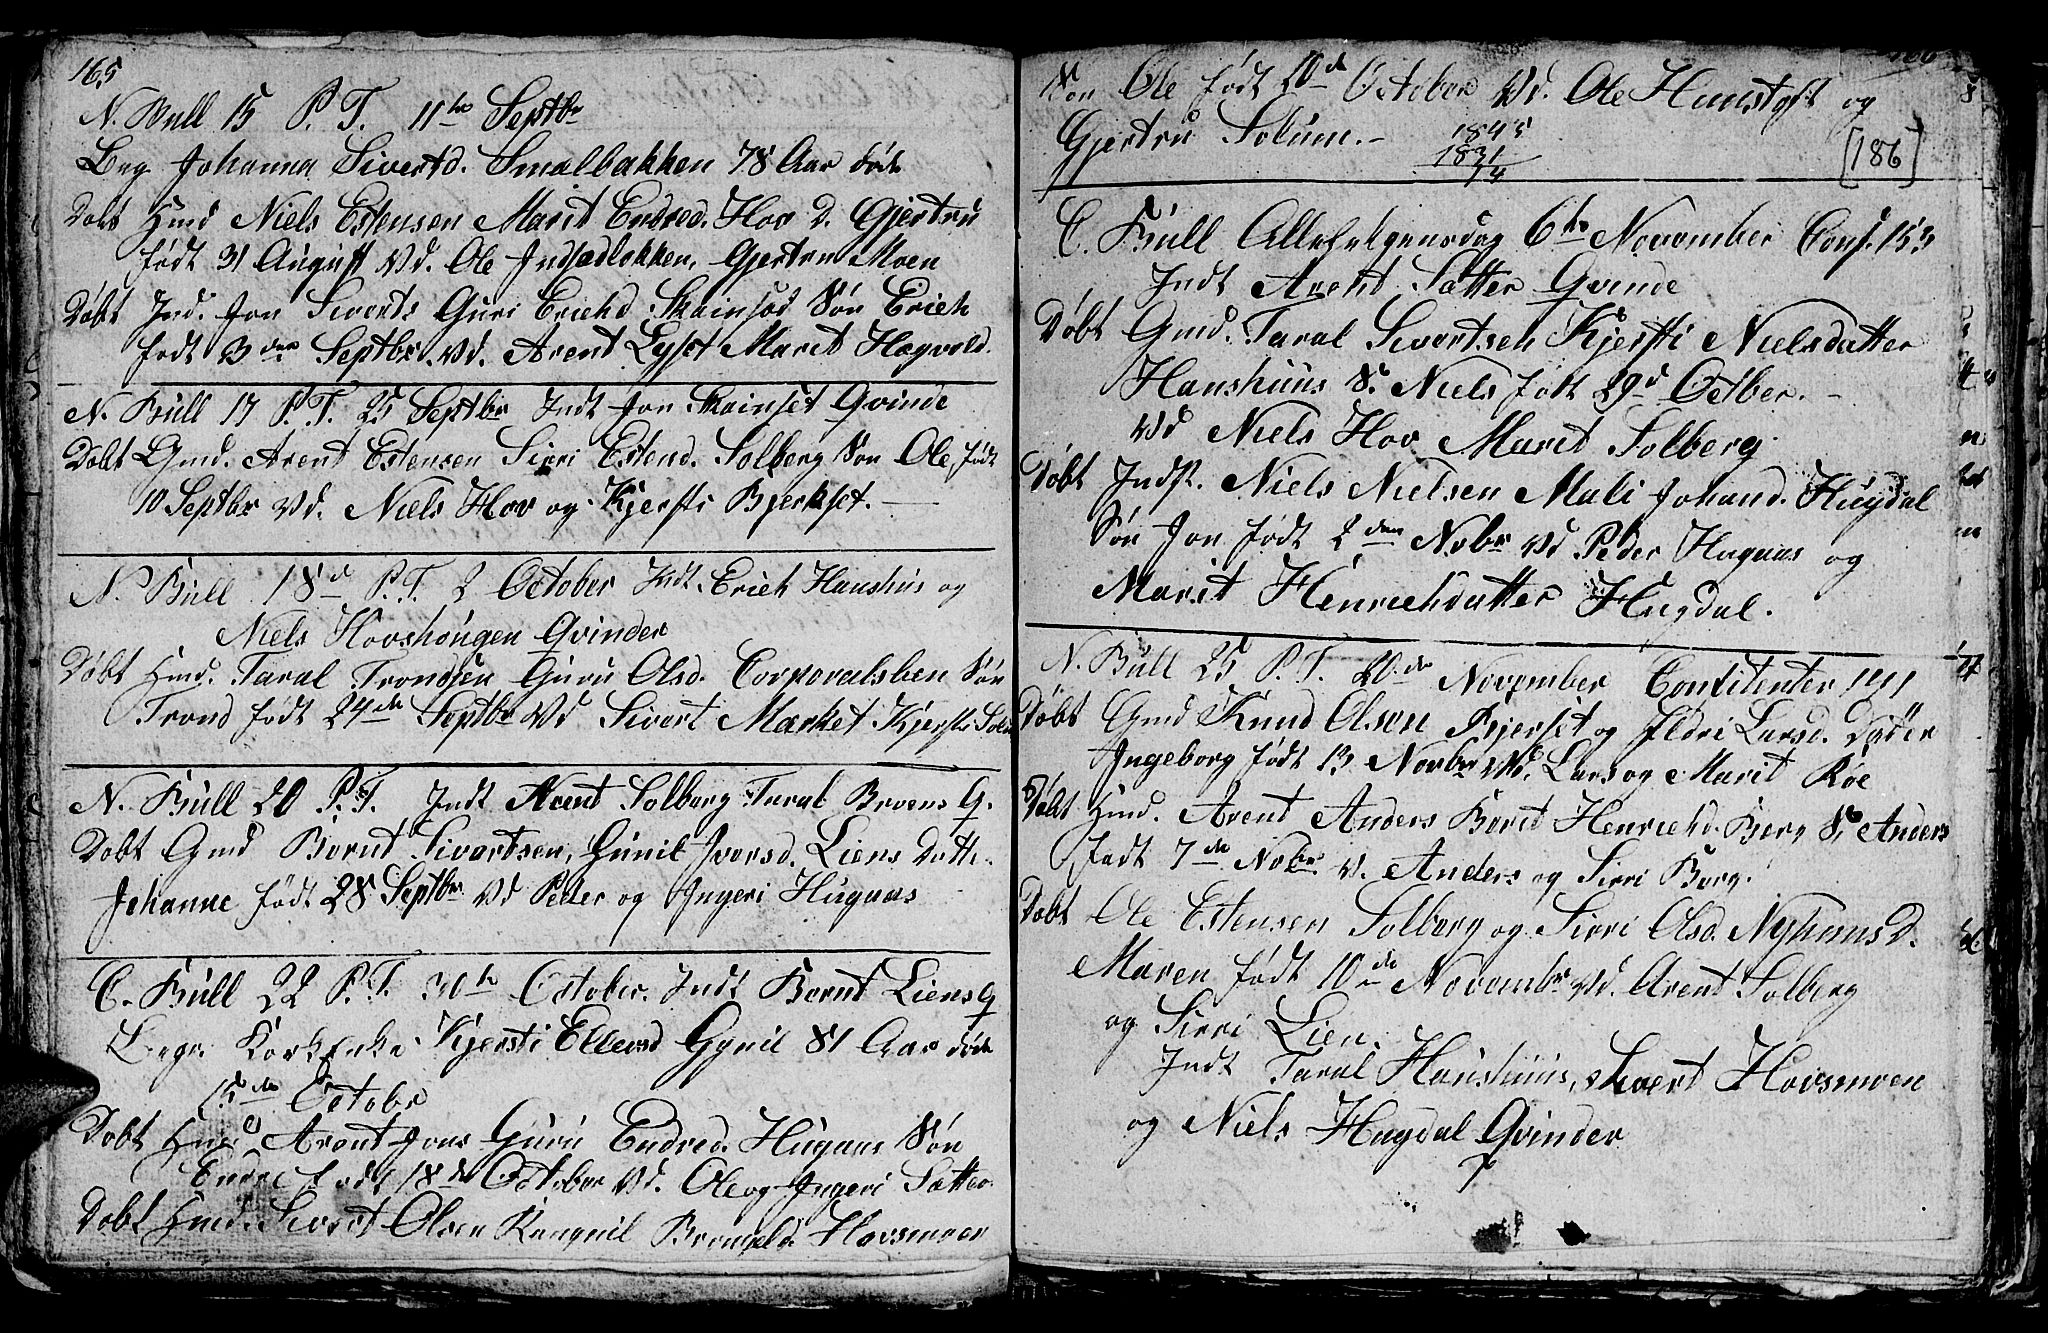 165
N. Bull 15 P. T. 11te Septbr
Beg. Johanna Sivertsd. Smalbakken 78 Aar død
Døbt Hmd Niels Estensen Marit Endred. Hov D. Gjertru
født 31 August Vd. Ole Indsædløkken, Gjertru Moen
Døbt Ind. Jon Siverts Guri Erichd. Skainsød Søn Erich
født 3den Septbr. Vd. Arent Lysøt Marit Hogvold.
N. Bull 17 P. T. 25 Septbr Indt Jon Skainset Qvinde
Døbt Gmd. Arent Estensen Sirri Estend. Solberg Søn Ole, født
10 Septbr Vd. Niels Hov og Kjersti Bjerkset.
N. Bull 18d P. T. 2 October Indt. Erich Hanshus og
Niels Hovshøugen Qvinder
Døbt Hmd. Taral Trondsen Guru Olsd. Corporalsben Søn
Trond født 24de Septbr Vd Sivert Market Kjersti
N. Bull 20 P. T. Indt Arent Solberg Taral Broens Q.
Døbt Gmd Bernt Sivertsen, Gunil Iversd. Liens Datte
Johanne født 28 Septbr Vd Peder og Ingeri Hugaas
C. Bull 22 P. T. 30te October. Indt Bernt Liens Q
Begr. Kjersti Ellevsd Gynil 81 Aar død
15de Octobr
Døbt Hmd Arent Jons Guru Endred. Hugaas Søn
Endre født 18de October Vd. Ole og Ingeri Sætter.
Døbt Hmd. Sivert Olsen Hovsmoen
166
Søn Ole født 20de October Vd. Ole og
Gjertru Solum.
1845
1831
14
[186]
C. Bull Allehelgensdag 6te November Conf. 153
Indt Arent Sætter Qvinde
Døbt Gmd. Taral Sivertsen Kjersti Nielsdatter
Hanshuus S. Niels født 29d Octber.
Vd Niels Hov Marit Solberg
Døbt Indst. Niels Nielsen Mali Johand. Hugdal
Søn Jon født 2den Nobr Vd Peder Hugaas og
Marit Henrichdatter Hugdal.
N. Bull 25 P. T. 20de November Confitenter 141
Døbt Gmd Knud Olsen Bjerset og Ildri Larsd. Datter
Ingeborg født 13 Novbr Vd. Lars og Marit Røe
Døbt Hmd. Arent Anders Berit Henrichd. Berg S. Anders
født 7de Nobr V. Anders og Sirri Berg.
Døbt Ole Estensen Solberg og Sirri Olsd. Nyhuus D.
Maren født 10de Novembr Vd. Arent Solberg
og Sirri Lien.
Indt Taral Hanshuus, Sivert Hovsmoen
og Niels Hugdal Qvinder